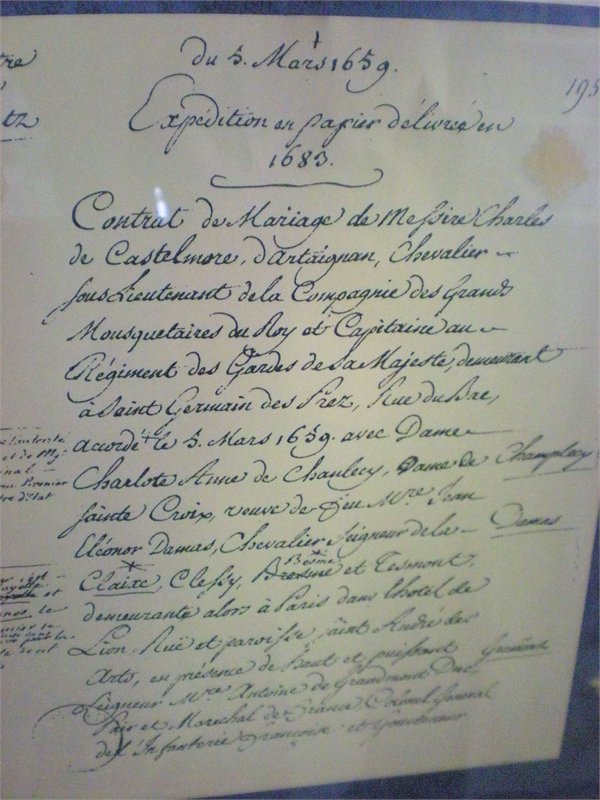 du 5. Mars 1659.
195
Expédition en papier délivrée en
1683.
Contrat de Mariage de Messire Charles
de Castelmore, d'artaignan, Chevalier
sous Lieutenant de la Compagnie des Grands
Mousquetaires du Roy et Capitaine au
Régiment des Gardes de sa Majesté, demeurant
à Saint Germain des Prez, Rue du Bac,
accordé le 5. Mars 1659. avec Dame
Charlote Anne de Chanlecy, Dame de Champlecy
Sainte Croix, veuve de feu Mre. Jean
Eléonor Damas, Chevalier Seigneur de la Damas
Besme
Claixe, Clessy, et Tesmont,
demeurante alors à Paris dans l'hotel de
Lion, Ruë et paroisse saint Andre des
Arts, en présence de haut et puissant Gramont
Seigneur Mre. Antoine de Grandmont Duc
Pair et Marechal de France Colonel General
de l'Infanterie françoise et Gouverneur